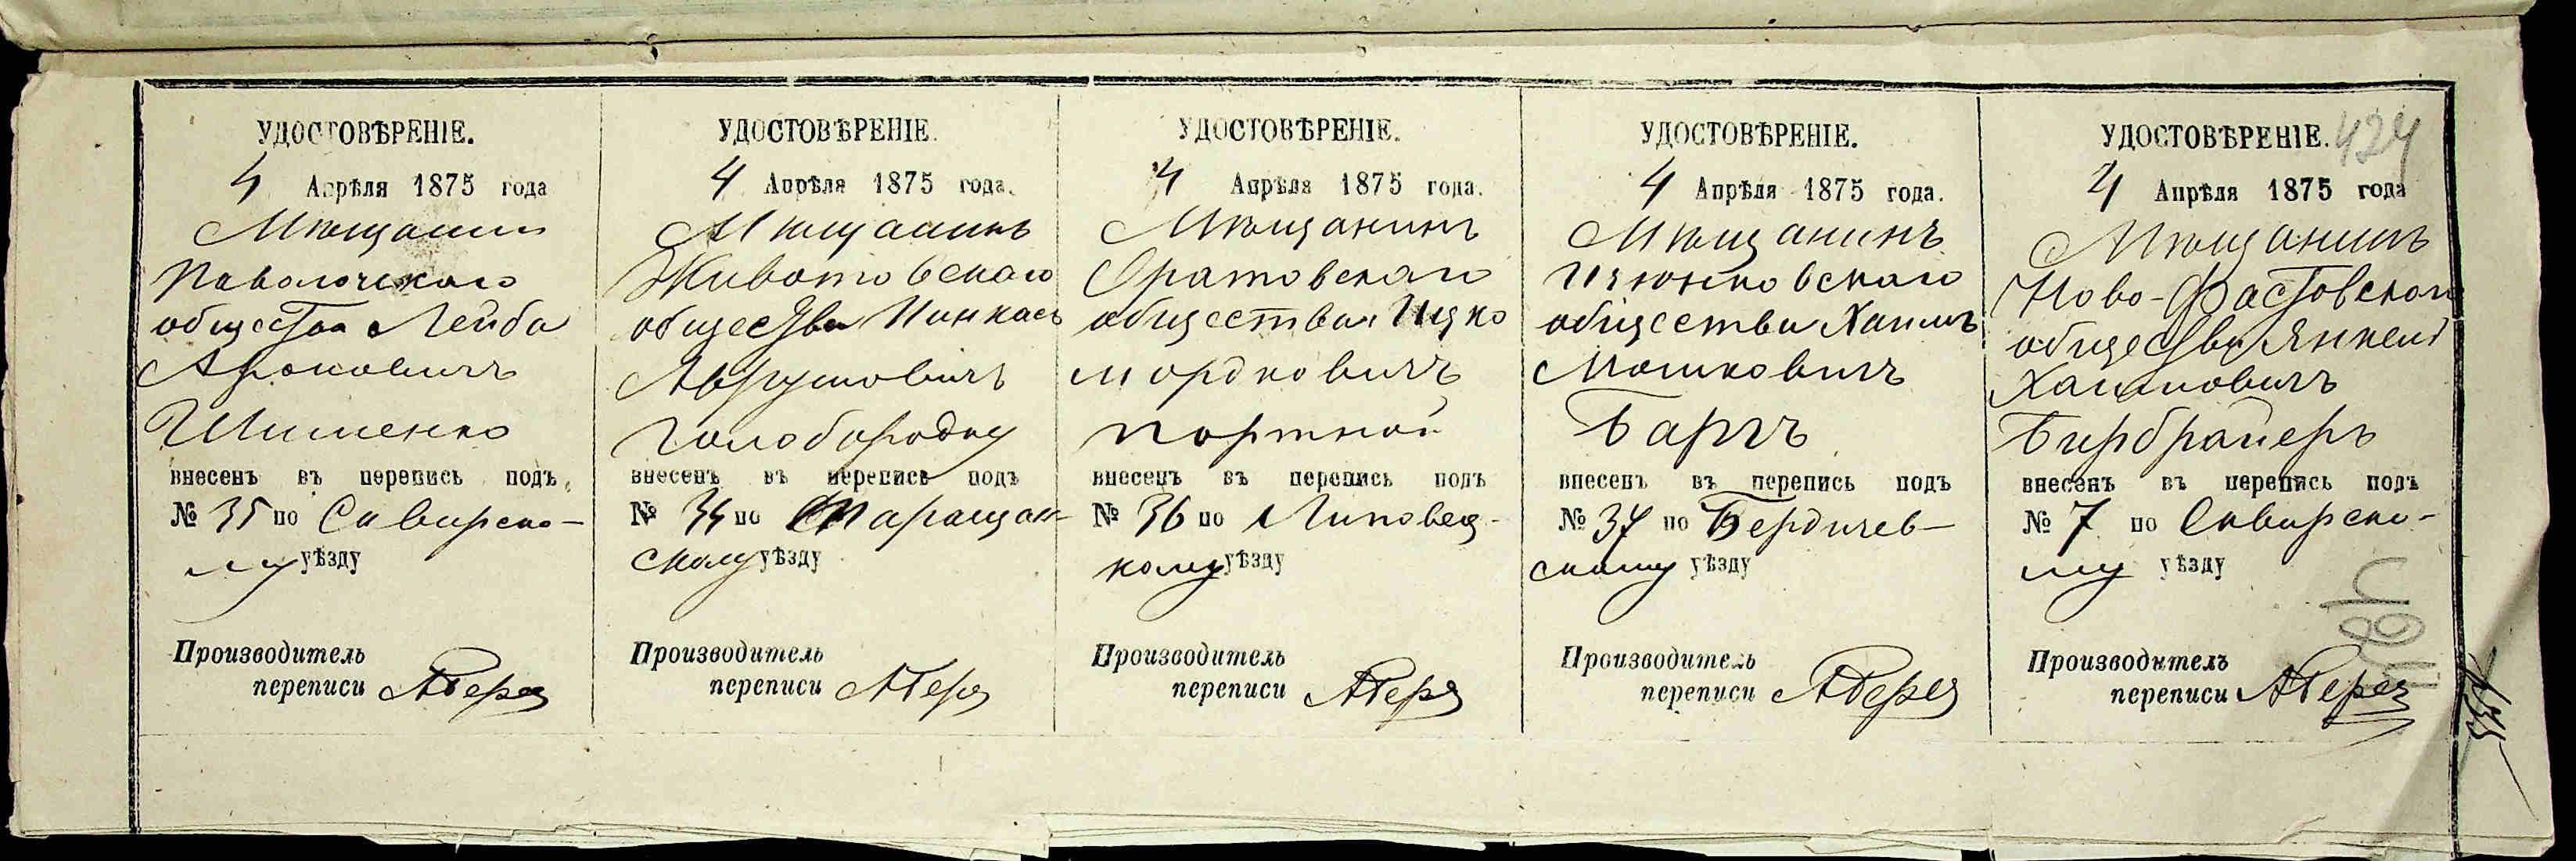 УДОСТОВѢРЕНІЕ.
4 Апрѣля 1875 года
Мѣщанинъ
Паволочскаго
общества Лейба
Ароновичъ
Шименко
внесенъ въ перепись подъ
№ 35 по Сквирско-
му уѣзду
Производитель
переписи
УДОСТОВѢРЕНІЕ.
4 Апрѣля 1875 года.
Мѣщанинъ
Животовскаго
общества Пинкасъ
Аврумовичъ
Голобородку
внесенъ въ перепись подъ
№ 34 по Таращан-
скому уѣзду
Производитель
переписи
УДОСТОВѢРЕНІЕ.
4 Апрѣля 1875 года.
Мѣщанинъ
Оратовскаго
общества Ицко
Мордковичъ
Портной
внесенъ въ перепись подъ
№ 36 по Липовец-
кому уѣзду
Производитель
переписи
УДОСТОВѢРЕНІЕ.
4 Апрѣля 1875 года.
Мѣщанинъ
общества Хаимъ
Мошковичъ
Баргъ
внесенъ въ перепись подъ
№ 37 по Бердичев-
скому уѣзду
Производитель
переписи
УДОСТОВѢРЕНІЕ. 424
4 Апрѣля 1875 года
Мѣщанинъ
Ново-Фастовскаго
общества Янкель
Хаимовичъ
Бирбраеръ
внесенъ въ перепись подъ
№ 7 по Сквирско-
му уѣзду
Производитель
переписи